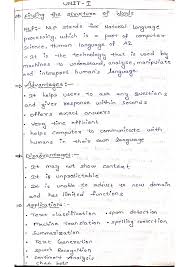 UNIT-I
Finding the structure of Words
NLP:- NLP stands for Natural language
processing, which is a part of computer
Science, Human language of AI
It is the technology that is used by
machines to understand, analyse, manipulate
and interpret human's language.
Advantages:-
It helps users to ask any questions
and gives response within seconds
offers exact answers
Very time efficient
helps computers to communicate with
humans in their own language
Disadvantages:-
It may not show context
It is unpredictable
It is unable to adapt to new domain
and has limited functions
Applications:-
Text classification . Spam detection
Machine translation . Spelling correction
Summarization
Text Generation
Speech Recognition
Sentiment Analysis
chat bots